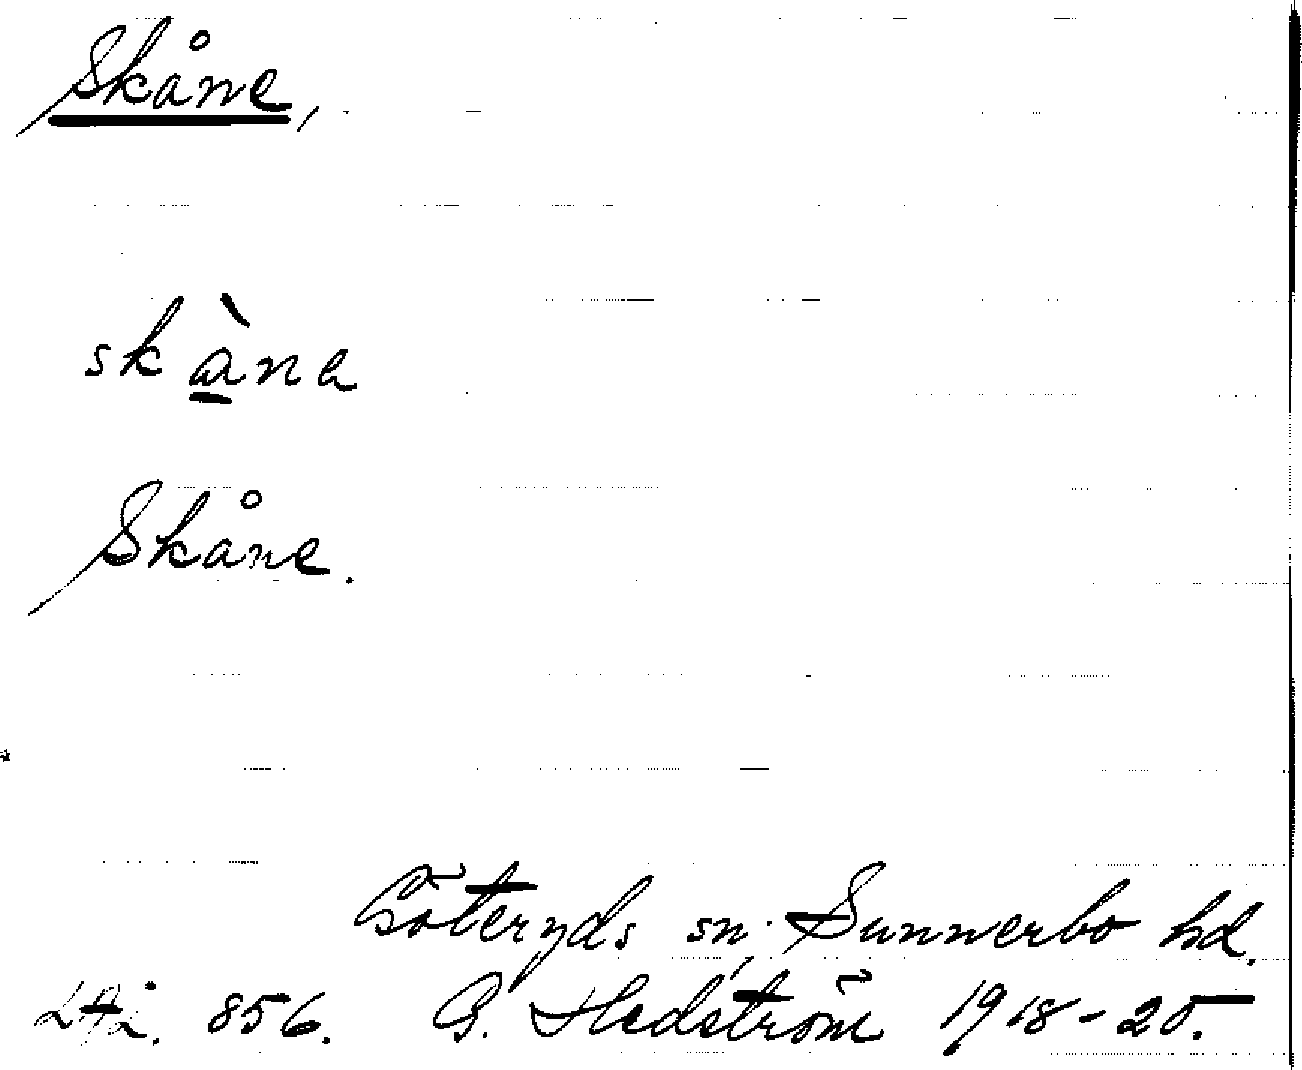 Skåne,
skàna
Skåne.
Göteryds sn. Sunnerbo hd.
856. G. Hedström 1918-20.